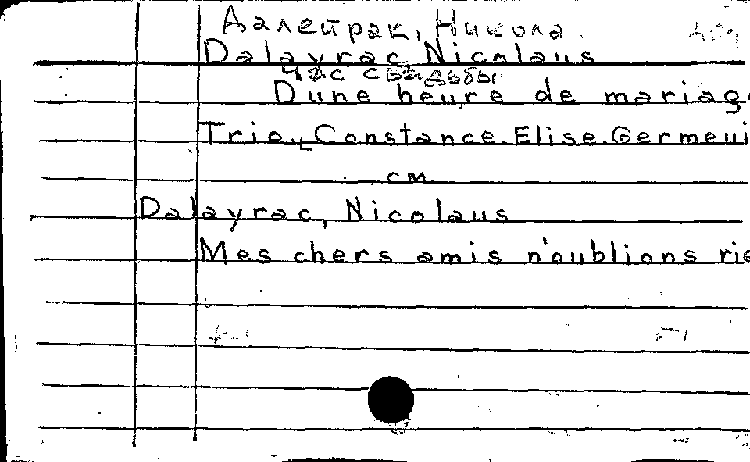 Далейрак, Никола.
Dalayrac Nicolaus
час свадьбы
Dune heure de mariag
Trio, Constance. Elise. Germeui
см
Dalayrac, Nicolaus
Mes chers amis n'oublions rie